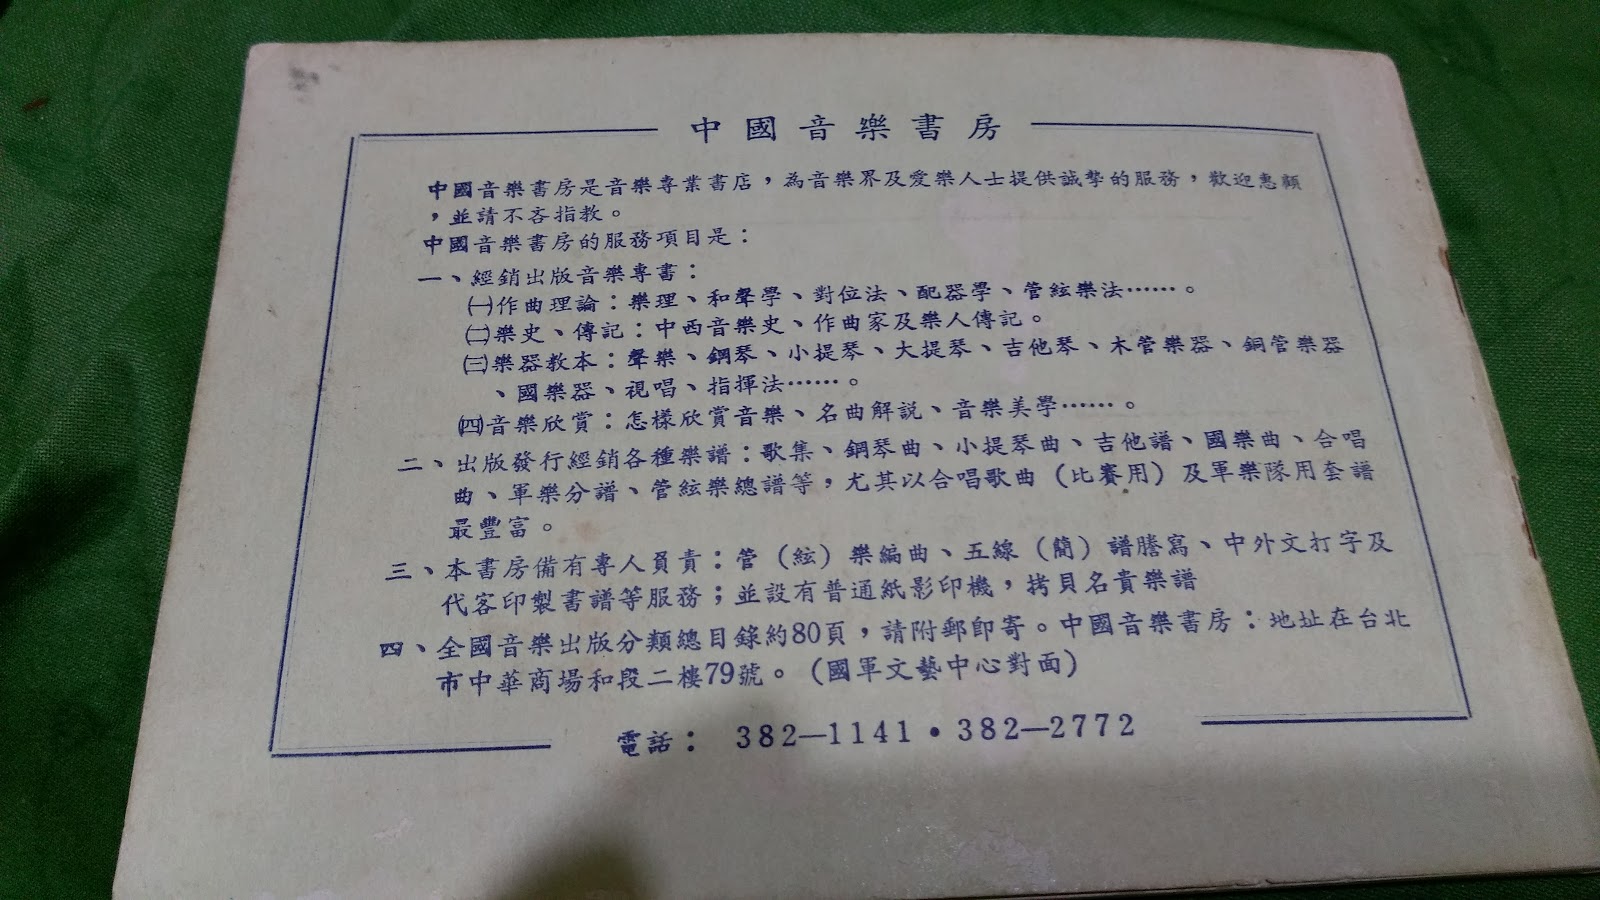 中國音樂書房
中國音樂書房是音樂專業書店，為音樂界及愛樂人士提供誠摯的服務，歡迎惠顧
，並請不吝指教。
中國音樂書房的服務項目是：
一、經銷出版音樂專書：
㈠作曲理論：樂理、和聲學、對位法、配器學、管絃樂法……。
㈡樂史、傳記：中西音樂史、作曲家及樂人傳記。
㈢樂器教本：聲樂、鋼琴、小提琴、大提琴、吉他琴、木管樂器、銅管樂器
、國樂器、視唱、指揮法……。
㈣音樂欣賞：怎樣欣賞音樂、名曲解說、音樂美學……。
二、出版發行經銷各種樂譜：歌集、鋼琴曲、小提琴曲、吉他譜、國樂曲、合唱
曲、軍樂分譜、管絃樂總譜等，尤其以合唱歌曲（比賽用）及軍樂隊用套譜
最豐富。
三、本書房備有專人負責：管（絃）樂編曲、五線（簡）譜謄寫、中外文打字及
代客印製書譜等服務；並設有普通紙影印機，拷貝名貴樂譜
四、全國音樂出版分類總目錄約80頁，請附郵即寄。中國音樂書房：地址在台北
市中華商場和段二樓79號。（國軍文藝中心對面）
電話： 382—1141・382—2772